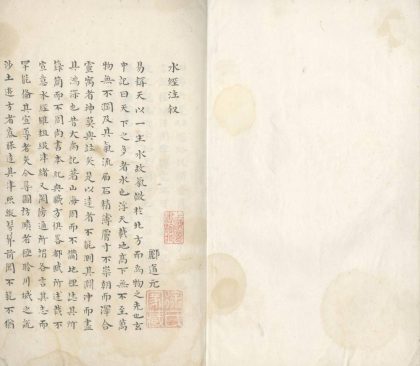 水經注叙
酈道元
易稱天以一生水故氣微於北方而為物之先也玄
中記曰天下之多者水也浮天載地高下無不至萬
物無不潤及其氣流屆石精薄膚寸不崇朝而澤合
靈寓者神莫與竝矣是以達者不能測其淵沖而盡
其鴻深也昔大禹記著山海周而不備地理誌其所
錄簡而不周尚書本紀與職方俱畧都賦所述裁不
宣意水經雖粗綴津緒又闕旁通所謂各言其志而
罕能備其宣導者矣今尋圖訪賾者極聆州域之說
涉土遊方者寡能達其津照縱髣髴前聞不能不猶